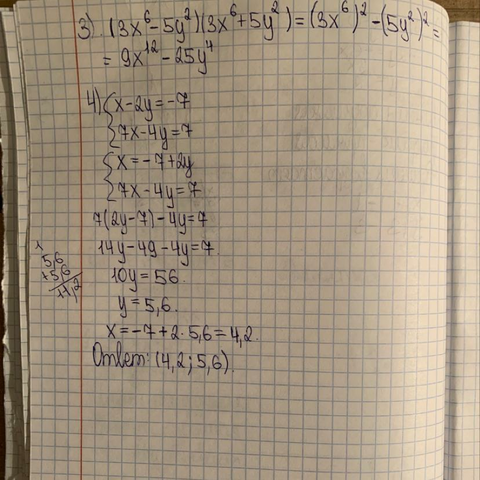 3) (3x⁶-5y²)(3x⁶+5y²)=(3x⁶)²-(5y²)²=
=9x¹²-25y⁴
4) {x-2y=-7
{7x-4y=7
{x=-7+2y
{7x-4y=7
7(2y-7)-4y=7
14y-49-4y=7.
10y=56.
y=5,6.
x=-7+2·5,6=4,2.
Ответ: (4,2;5,6).
1
5,6
+5,6
11,2